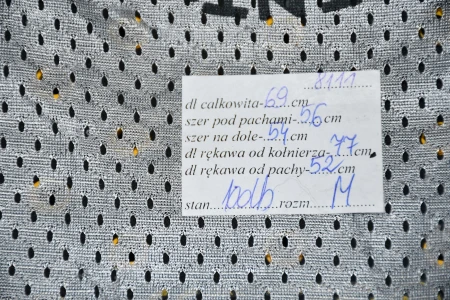 8111
dl całkowita-69cm
szer pod pachami-56cm
szer na dole-54cm
dl rękawa od kołnierza-77cm
dl rękawa od pachy-52cm
stan bdb rozm. M